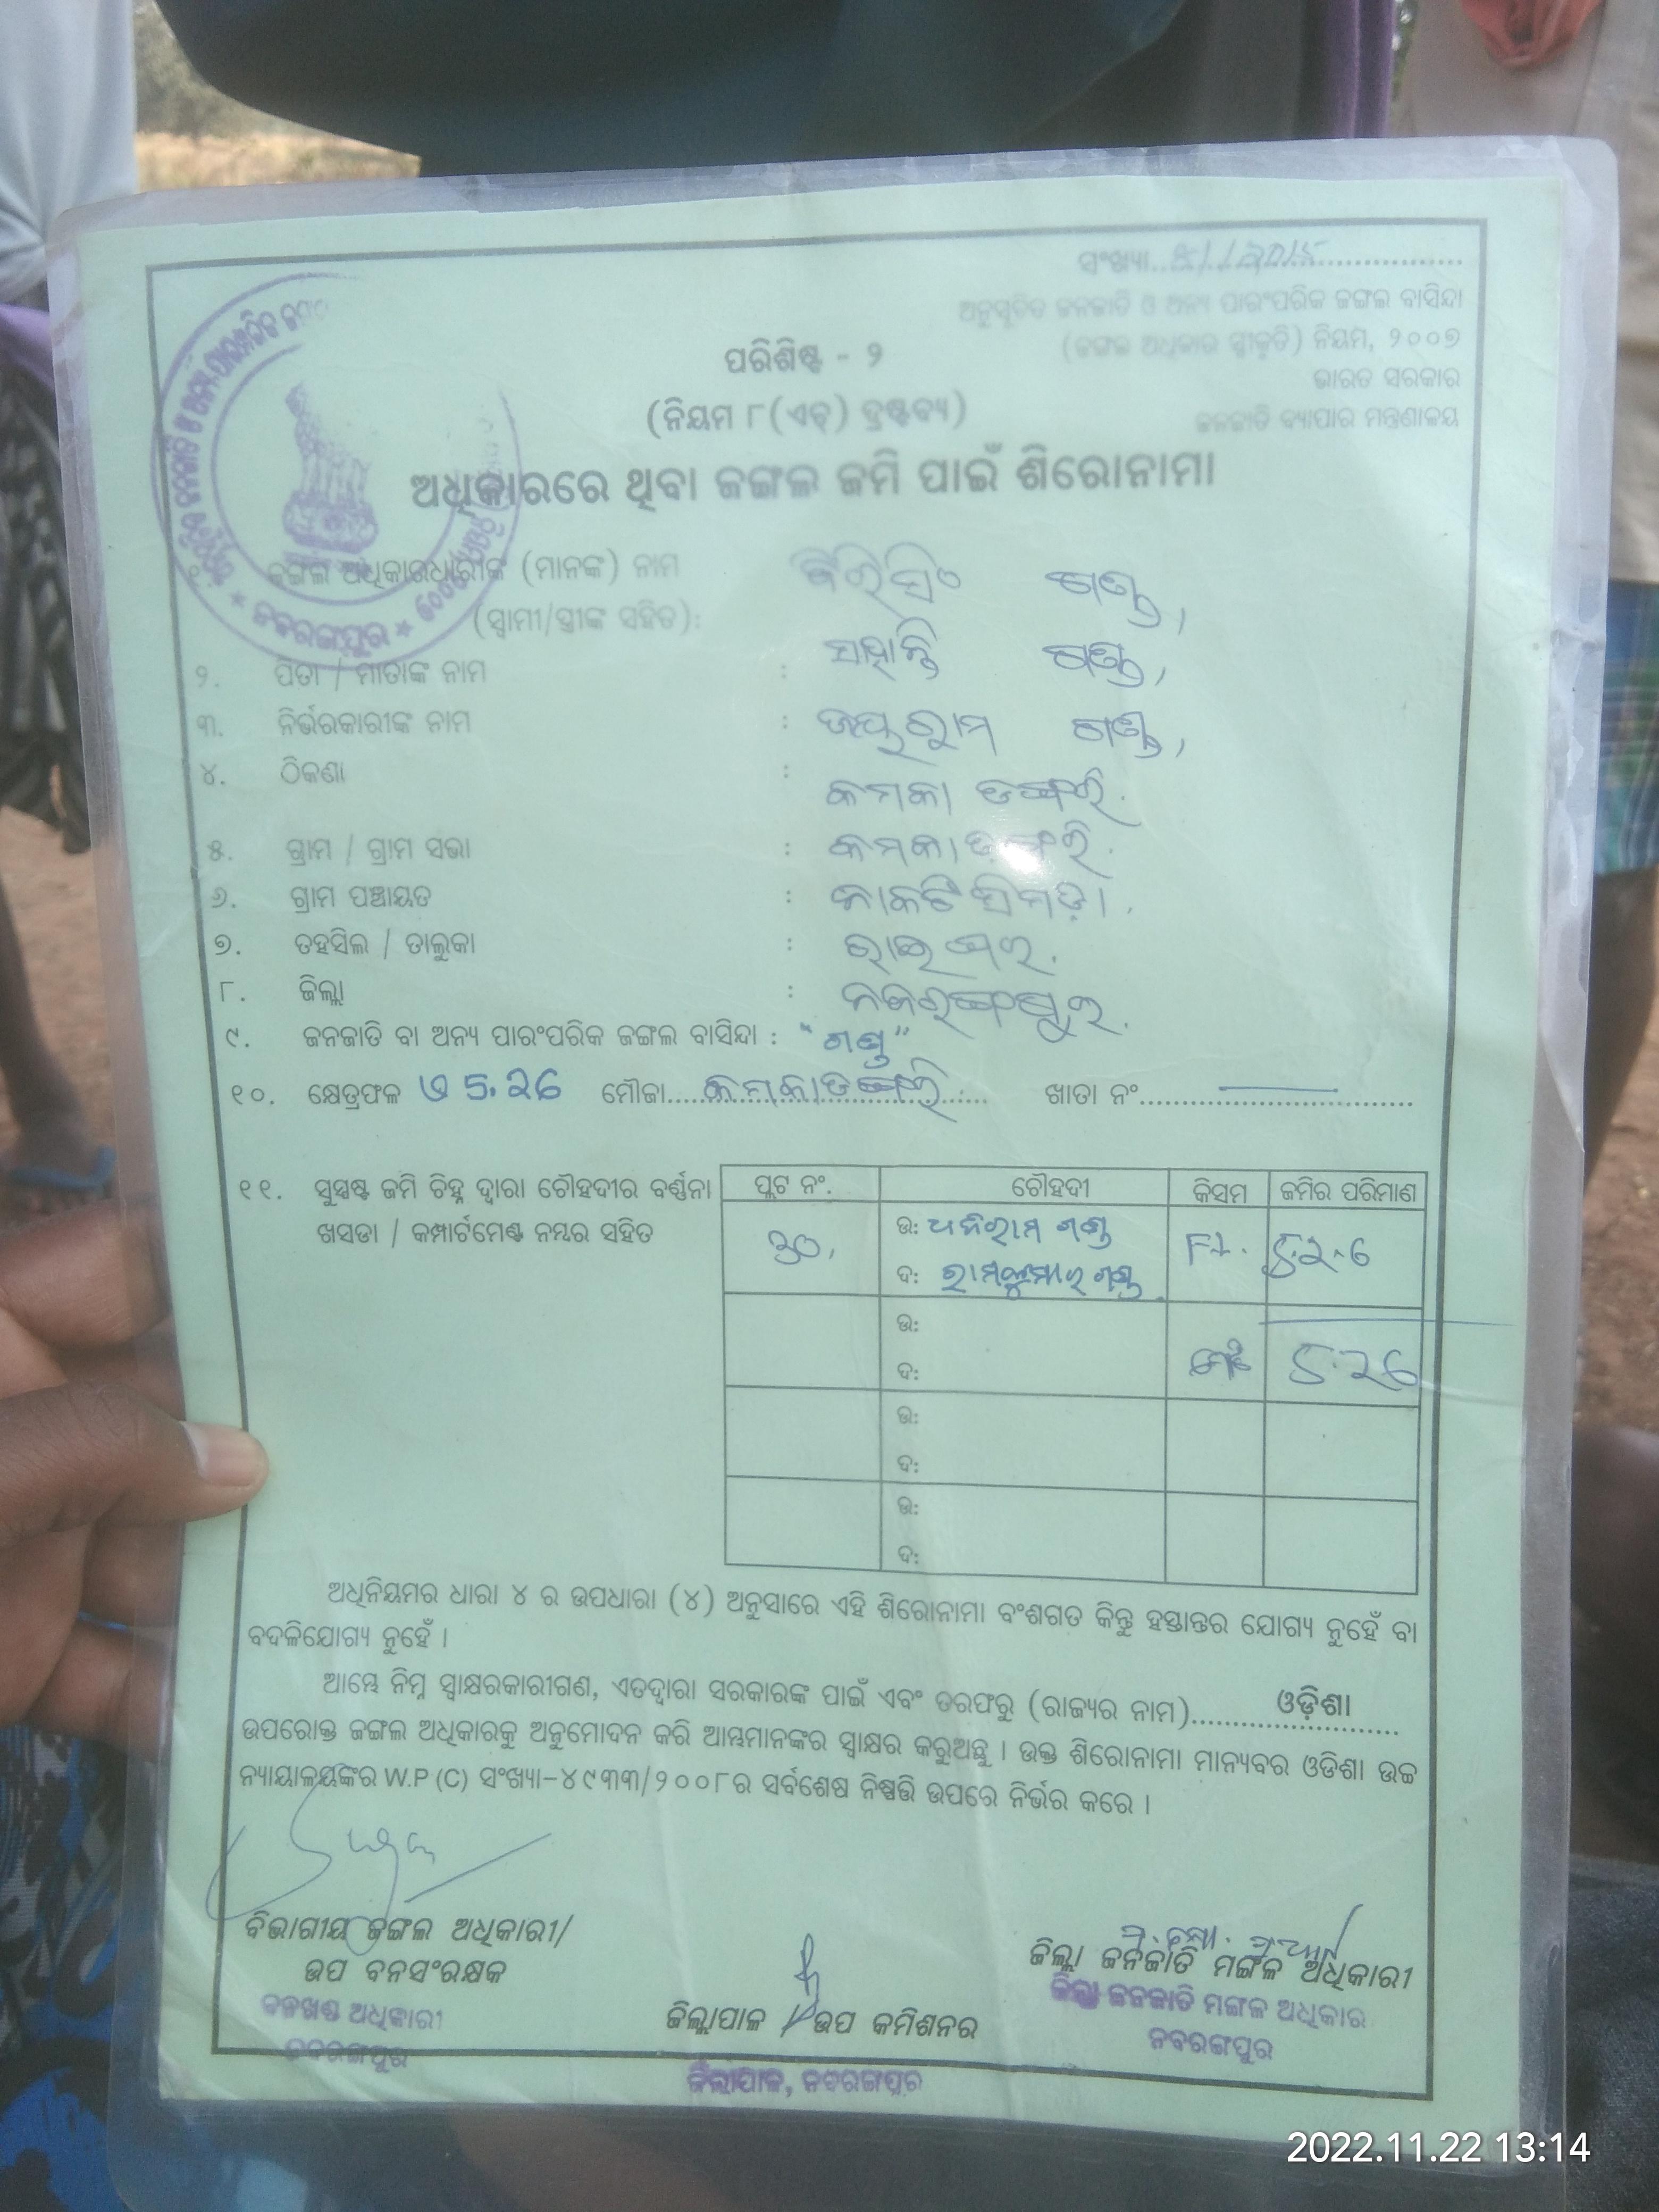 ସଂଖ୍ୟା
ଅନୁସୂଚିତ ଜନଜାତି ଓ ଅନ୍ୟ ପାରଂପରିକ ଜଙ୍ଗଲ ବାସିନ୍ଦା
(ଜଙ୍ଗଲ ଅଧିକାର ସ୍ୱୀକୃତି) ନିୟମ, ୨୦୦୭
ଭାରତ ସରକାର
ଜନଜାତି ବ୍ୟାପାର ମନ୍ତ୍ରଣାଳୟ
ପରିଶିଷ୍ଟ - ୨
(ନିୟମ ୮(ଏଚ୍) ଦ୍ରଷ୍ଟବ୍ୟ)
ଅଧିକାରରେ ଥିବା ଜଙ୍ଗଲ ଜମି ପାଇଁ ଶିରୋନାମା
୧. ଜଙ୍ଗଲ ଅଧିକାରଧାରୀଙ୍କ (ମାନଙ୍କ) ନାମ ଗଣ୍ଡ,
(ସ୍ୱାମୀ/ସ୍ତ୍ରୀଙ୍କ ସହିତ):
୨. ପିତା / ମାତାଙ୍କ ନାମ : ଗଣ୍ଡ,
୩. ନିର୍ଭରକାରୀଙ୍କ ନାମ : ଜୟରାମ ଗଣ୍ଡ,
୪. ଠିକଣା :
୫. ଗ୍ରାମ / ଗ୍ରାମ ସଭା :
୬. ଗ୍ରାମ ପଞ୍ଚାୟତ : ନାକଟିସିମଡ଼ା.
୭. ତହସିଲ / ତାଲୁକା : ରାଇଘର.
୮. ଜିଲ୍ଲା : ନବରଙ୍ଗପୁର.
୯. ଜନଜାତି ବା ଅନ୍ୟ ପାରଂପରିକ ଜଙ୍ଗଲ ବାସିନ୍ଦା : "ଗଣ୍ଡ"
୧୦. କ୍ଷେତ୍ରଫଳ ଏ 5.26 ମୌଜା ଖାତା ନଂ
୧୧. ସୁସ୍ପଷ୍ଟ ଜମି ଚିହ୍ନ ଦ୍ୱାରା ଚୌହଦୀର ବର୍ଣ୍ଣନା
ଖସଡା / କମ୍ପାର୍ଟମେଣ୍ଟ ନମ୍ବର ସହିତ
ପ୍ଲଟ ନଂ. ଚୌହଦୀ କିସମ ଜମିର ପରିମାଣ
30. ଉ: ଧନିରାମ ଗଣ୍ଡ
ଦ: ରାମକୁମାର ଗଣ୍ଡ 5.26
ଉ:
ଦ: 5.26
ଉ:
ଦ:
ଉ:
ଦ:
ଅଧିନିୟମର ଧାରା ୪ ର ଉପଧାରା (୪) ଅନୁସାରେ ଏହି ଶିରୋନାମା ବଂଶଗତ କିନ୍ତୁ ହସ୍ତାନ୍ତର ଯୋଗ୍ୟ ନୁହେଁ ବା
ବଦଳିଯୋଗ୍ୟ ନୁହେଁ ।
ଆମ୍ଭେ ନିମ୍ନ ସ୍ୱାକ୍ଷରକାରୀଗଣ, ଏତଦ୍ୱାରା ସରକାରଙ୍କ ପାଇଁ ଏବଂ ତରଫରୁ (ରାଜ୍ୟର ନାମ) ଓଡ଼ିଶା
ଉପରୋକ୍ତ ଜଙ୍ଗଲ ଅଧିକାରକୁ ଅନୁମୋଦନ କରି ଆମ୍ଭମାନଙ୍କର ସ୍ୱାକ୍ଷର କରୁଅଛୁ । ଉକ୍ତ ଶିରୋନାମା ମାନ୍ୟବର ଓଡିଶା ଉଚ୍ଚ
ନ୍ୟାୟାଳୟଙ୍କର W.P (C) ସଂଖ୍ୟା-୪୯୩୩/୨୦୦୮ର ସର୍ବଶେଷ ନିଷ୍ପତ୍ତି ଉପରେ ନିର୍ଭର କରେ ।
ବିଭାଗୀୟ ଜଙ୍ଗଲ ଅଧିକାରୀ/
ଉପ ବନସଂରକ୍ଷକ
ବନଖଣ୍ଡ ଅଧିକାରୀ
ନବରଙ୍ଗପୁର
ଜିଲ୍ଲାପାଳ / ଉପ କମିଶନର
ଜିଲ୍ଲାପାଳ, ନବରଙ୍ଗପୁର
ଜିଲ୍ଲା ଜନଜାତି ମଙ୍ଗଳ ଅଧିକାରୀ
ଜିଲ୍ଲା ଜନଜାତି ମଙ୍ଗଳ ଅଧିକାର
ନବରଙ୍ଗପୁର
2022.11.22 13:14